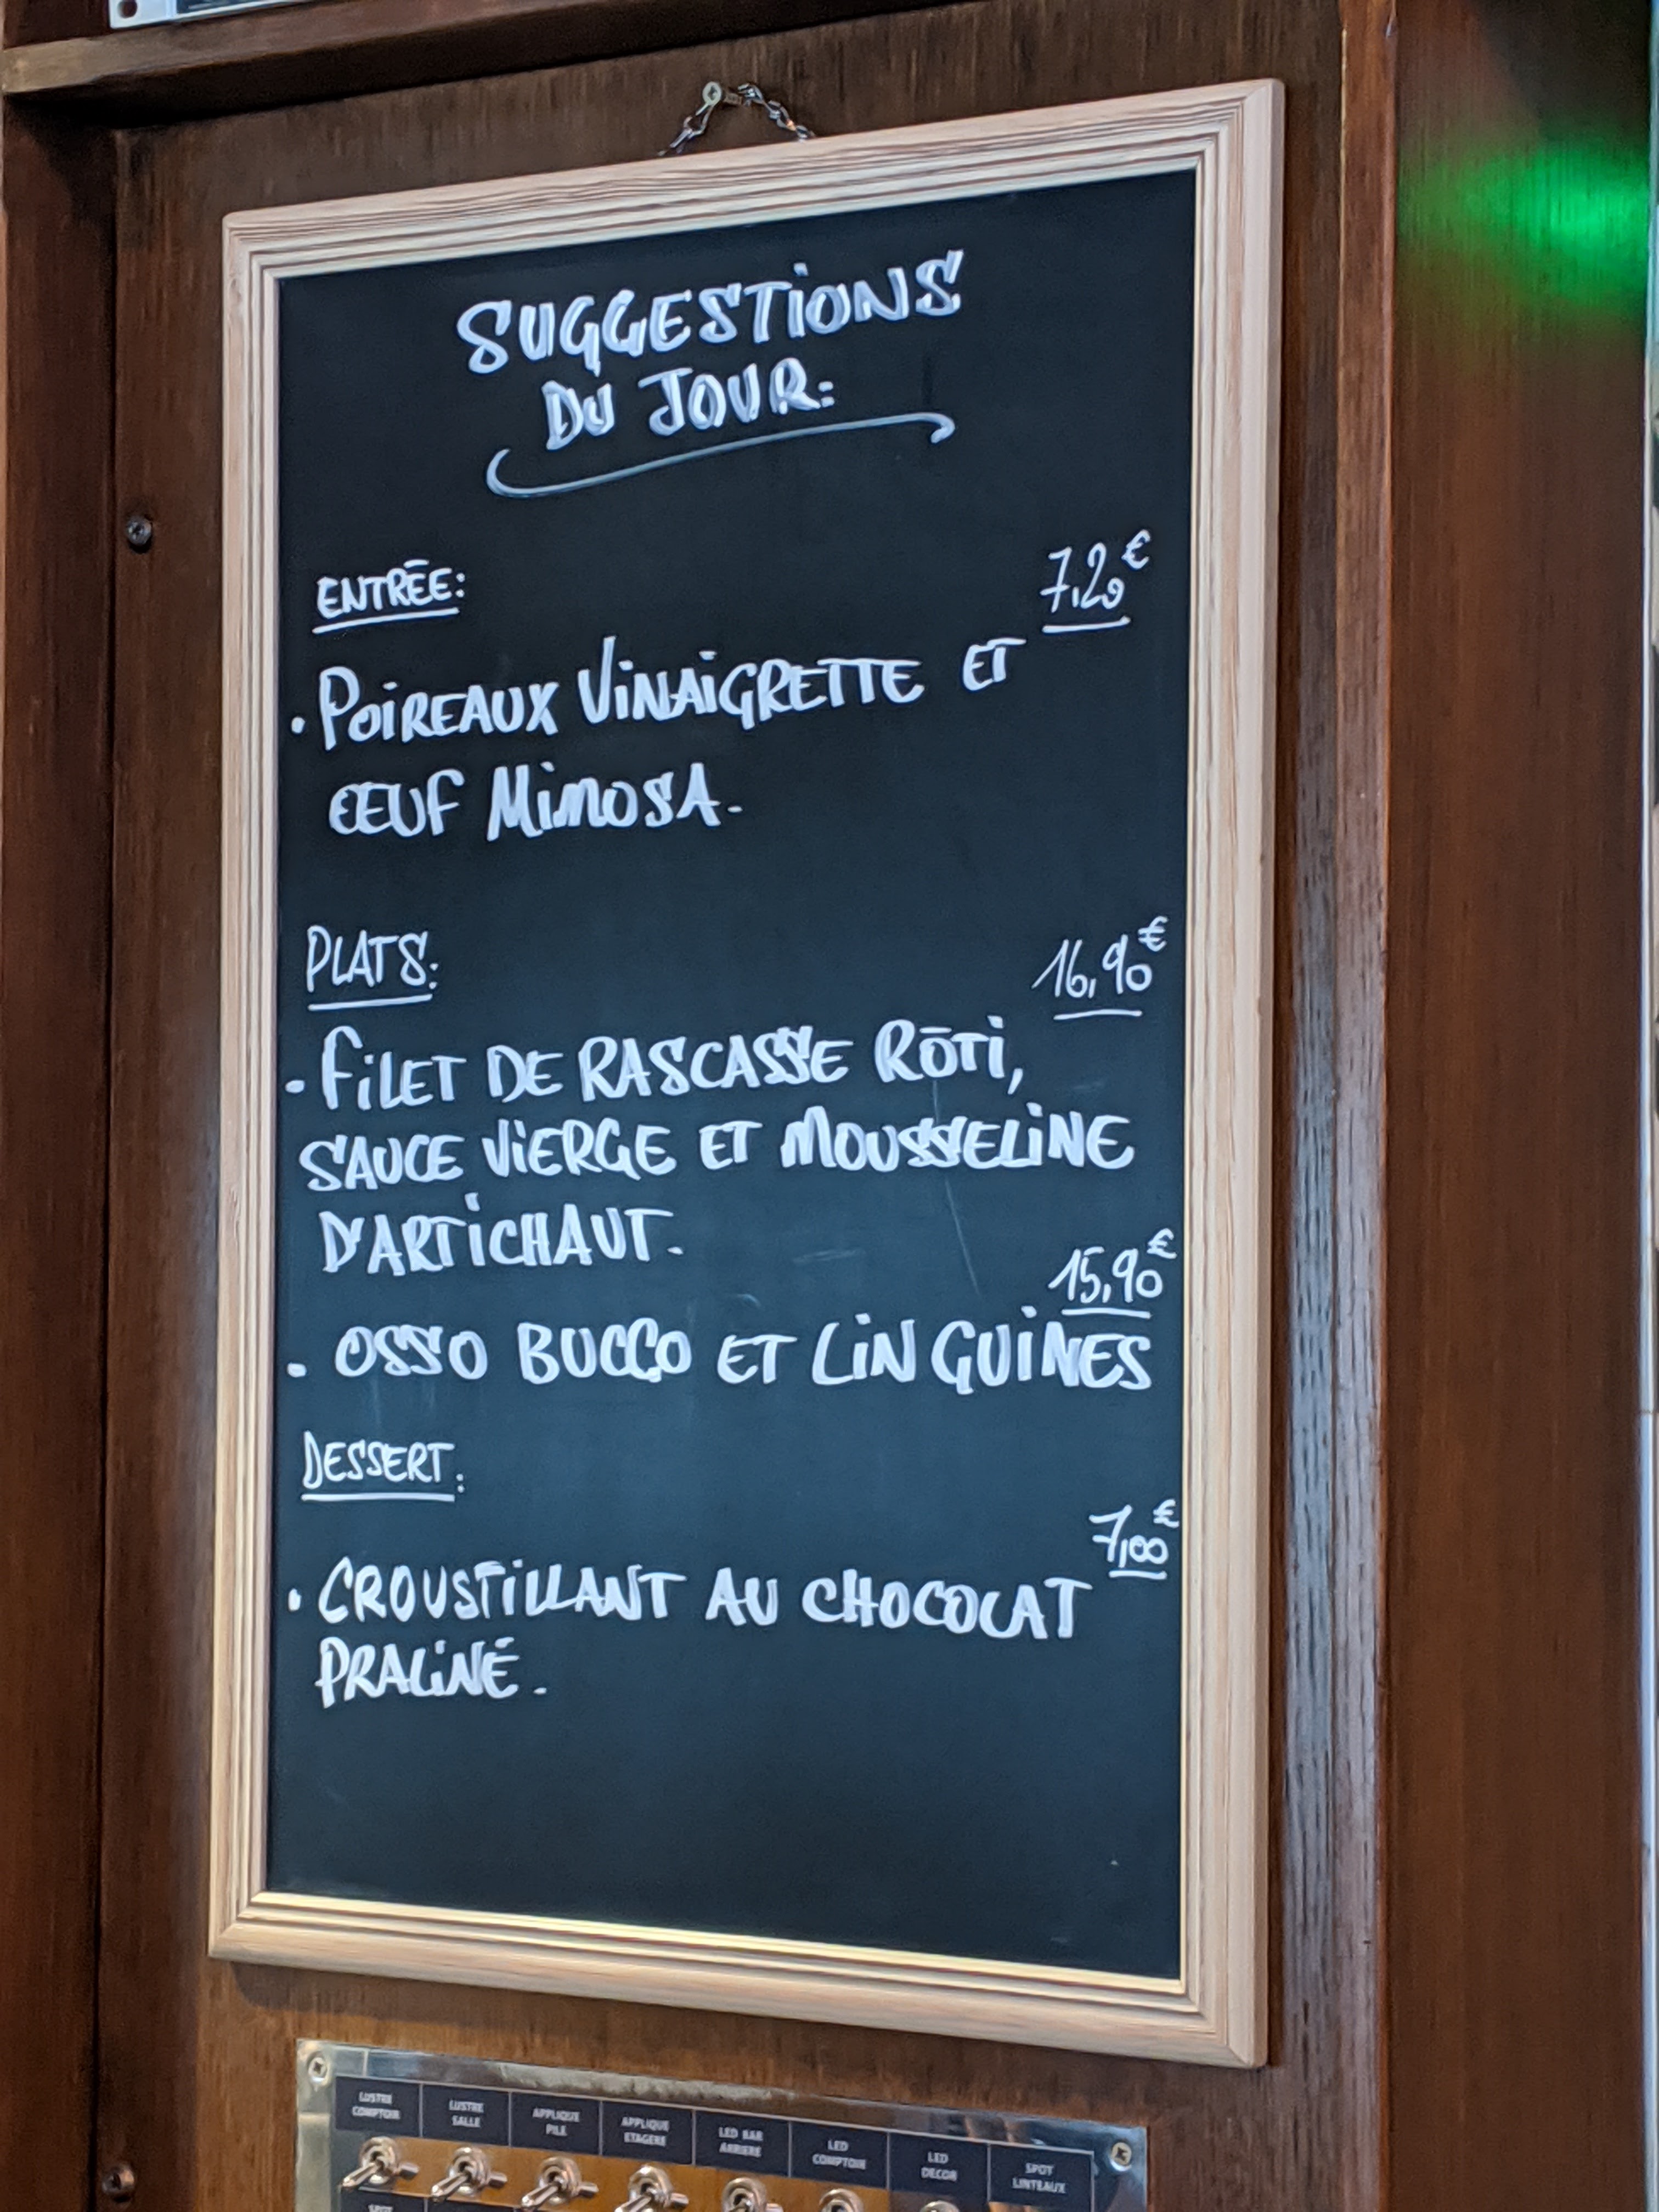 SUGGESTIONS
DU JOUR:
ENTRÉE:
7,20€
• POIREAUX VINAIGRETTE ET
ŒUF MIMOSA.
PLATS:
16,90€
- FILET DE RASCASSE RÔTI,
SAUCE VIERGE ET MOUSSELINE
D'ARTICHAUT.
15,90€
• OSSO BUCCO ET LINGUINES
DESSERT:
7,00€
• CROUSTILLANT AU CHOCOLAT
PRALINÉ.
LUSTRE COMPTOIR
LUSTRE SALLE
APPLIQUE PILE
APPLIQUE ETAGERE
LED BAR ARRIERE
LED COMPTOIR
LED DECOR
SPOT LINTEAUX
SPOT